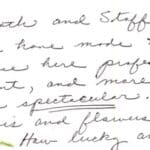 and Staff
have made
here profes
and more
spectacular
is and flowers
How lucky